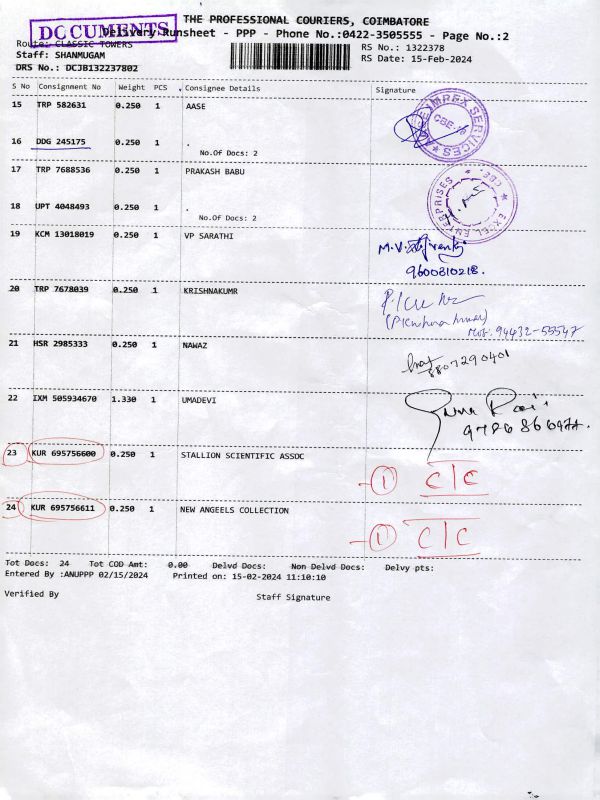 THE PROFESSIONAL COURIERS, COIMBATORE
DOCUMENTS
Delivery Runsheet - PPP - Phone No.:0422-3505555 - Page No.:2
Route: CLASSIC TOWERS
RS No.: 1322378
Staff: SHANMUGAM
RS Date: 15-Feb-2024
DRS No.: DCJB132237802
S No Consignment No Weight PCS Consignee Details Signature
15 TRP 582631 0.250 1 AASE
IMPEX SERVICES
CBE-18
16 DDG 245175 0.250 1 .
No.Of Docs: 2
17 TRP 7688536 0.250 1 PRAKASH BABU
EXCEL ENTERPRISES CBE.
18 UPT 4048493 0.250 1 .
No.Of Docs: 2
19 KCM 13018019 0.250 1 VP SARATHI
M.V.
9600810218.
20 TRP 7678039 0.250 1 KRISHNAKUMR
Mob: 94432-55547
21 HSR 2985333 0.250 1 NAWAZ
8807290401
22 IXM 505934670 1.330 1 UMADEVI
23 KUR 695756600 0.250 1 STALLION SCIENTIFIC ASSOC
- 1 C/C
24 KUR 695756611 0.250 1 NEW ANGEELS COLLECTION
- 1 C/C
Tot Docs: 24 Tot COD Amt: 0.00 Delvd Docs: Non Delvd Docs: Delvy pts:
Entered By :ANUPPP 02/15/2024 Printed on: 15-02-2024 11:10:10
Verified By Staff Signature